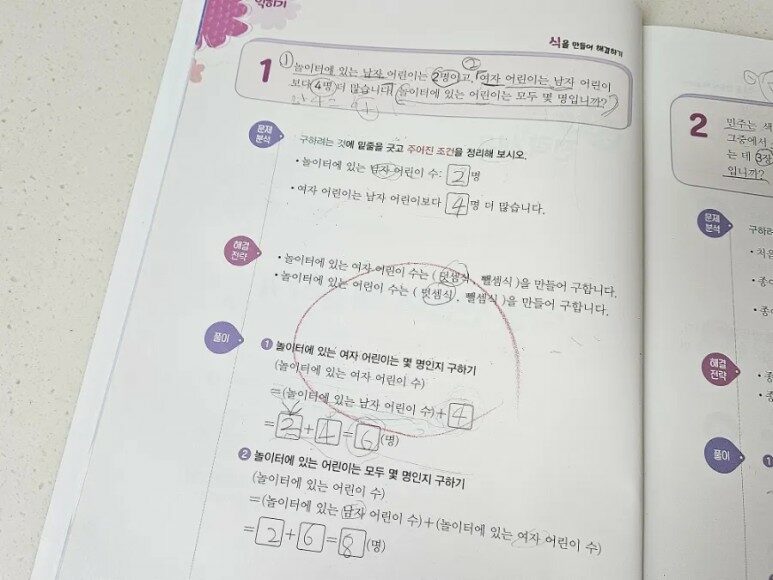 익히기
식을 만들어 해결하기
1
① 놀이터에 있는 남자 어린이는 2명이고, ② 여자 어린이는 남자 어린이
보다 4명 더 많습니다. 놀이터에 있는 어린이는 모두 몇 명입니까?
문제
분석
구하려는 것에 밑줄을 긋고 주어진 조건을 정리해 보시오.
• 놀이터에 있는 남자 어린이 수: 2 명
• 여자 어린이는 남자 어린이보다 4 명 더 많습니다.
해결
전략
• 놀이터에 있는 여자 어린이 수는 ( 덧셈식 , 뺄셈식 )을 만들어 구합니다.
• 놀이터에 있는 어린이 수는 ( 덧셈식 , 뺄셈식 )을 만들어 구합니다.
풀이
❶ 놀이터에 있는 여자 어린이는 몇 명인지 구하기
(놀이터에 있는 여자 어린이 수)
=(놀이터에 있는 남자 어린이 수)+ 4
= 2 + 4 = 6 (명)
❷ 놀이터에 있는 어린이는 모두 몇 명인지 구하기
(놀이터에 있는 어린이 수)
=(놀이터에 있는 남자 어린이 수)+(놀이터에 있는 여자 어린이 수)
= 2 + 6 = 8 (명)
2
민주는 색
그중에서
는 데 3장
입니까?
문제
분석
구하려
• 처음
• 종이
• 종
해결
전략
• 종
• 종
풀이
❶